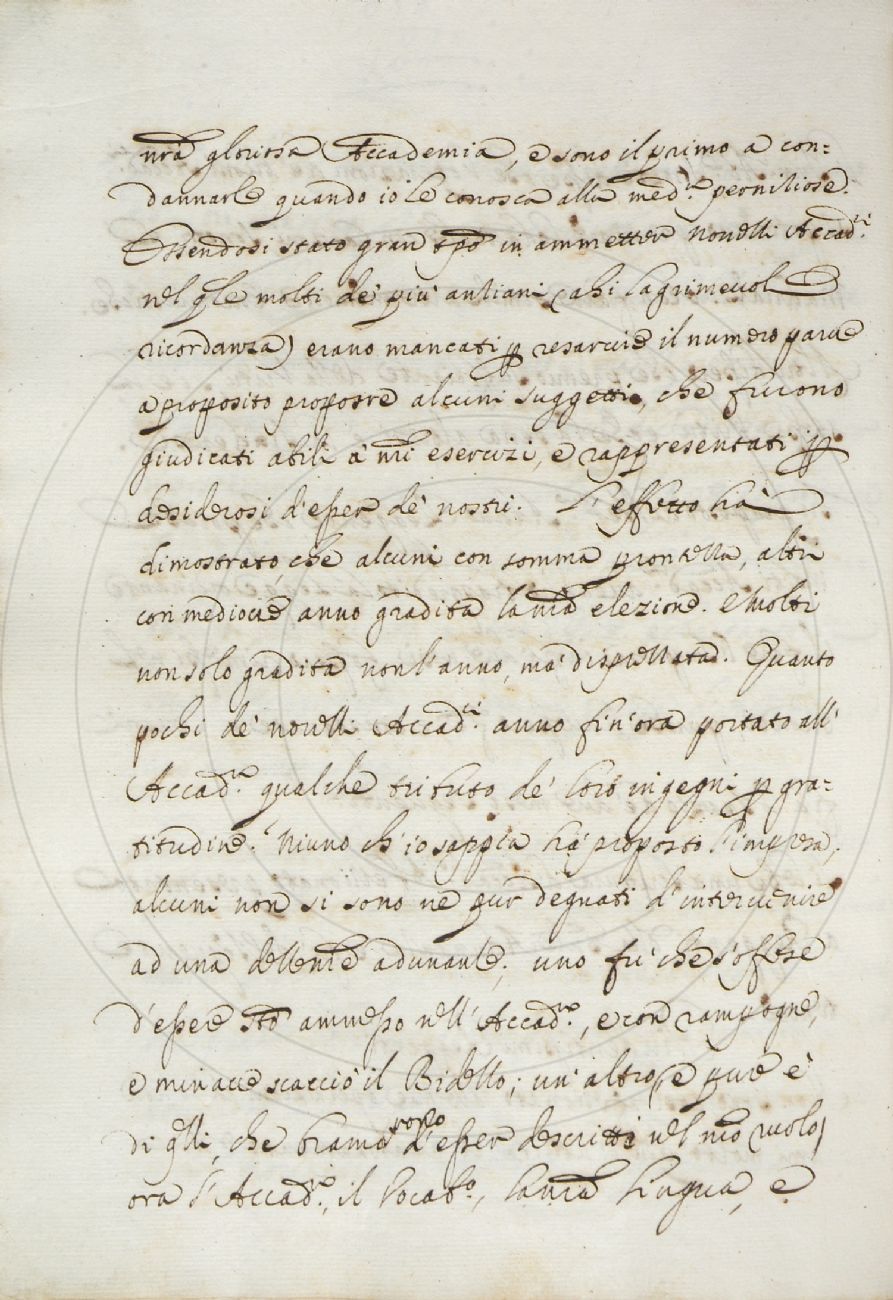 nrã gloriosa Accademia, e sono il primo a con=
dannarle quando io le conosca alla med.ª perniziose.
Essendosi stato gran tpo in ammetter novelli Accad.ci
nel qle molti de' più anziani (ahi lagrimevole
ricordanza) erano mancati, p resarcire il numero parve
a proposito proporre alcuni suggetti, che furono
giudicati abili a' nri esercizi, e rappresentati p
desiderosi d'esser de' nostri. L'effetto hà
dimostrato, che alcuni con somma prontezza, altri
con mediocre anno gradita la nrã elezione. e Molti
non solo gradita non l'anno, mà disprezzata. Quanto
pochi de' novelli Accad.ci anno fin'ora portato all'
Accad.ª qualche tributo de' loro ingegni p gra=
titudine. Niuno ch'io sappia hà proposto l'impresa,
alcuni non si sono ne pur degnati d'intervenire
ad una delle nrẽ adunanze; uno fù che s'offese
d'essere sto ammesso nell'Accad.ª, e con rampogne,
e minacce scacciò il Bidello; un'altro (e pure è
di qlli, che bramò poco d'esser descritti nel nro ruolo)
ora l'Accad.ª, il Vocab.º, la nrã lingua, e